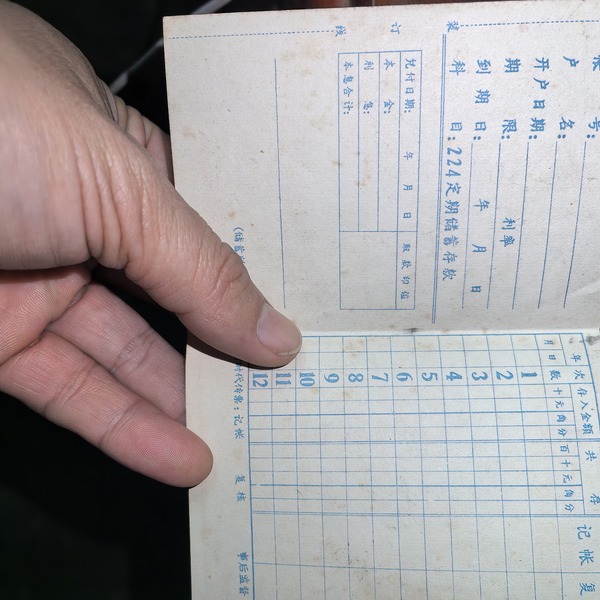 装 订 线
帐 号:
户 名:
开户日期:
期 限: 利率
到期日: 年 月 日
科 目:224定期储蓄存款
兑付日期: 年 月 日 取款印鉴
本 金:
利 息:
本息合计:
年 次 存入金额 共 存 记帐 复
月 日 数 十元角分 百十元角分
1
2
3
4
5
6
7
8
9
10
11
12
代传票: 记帐 复核 事后监督